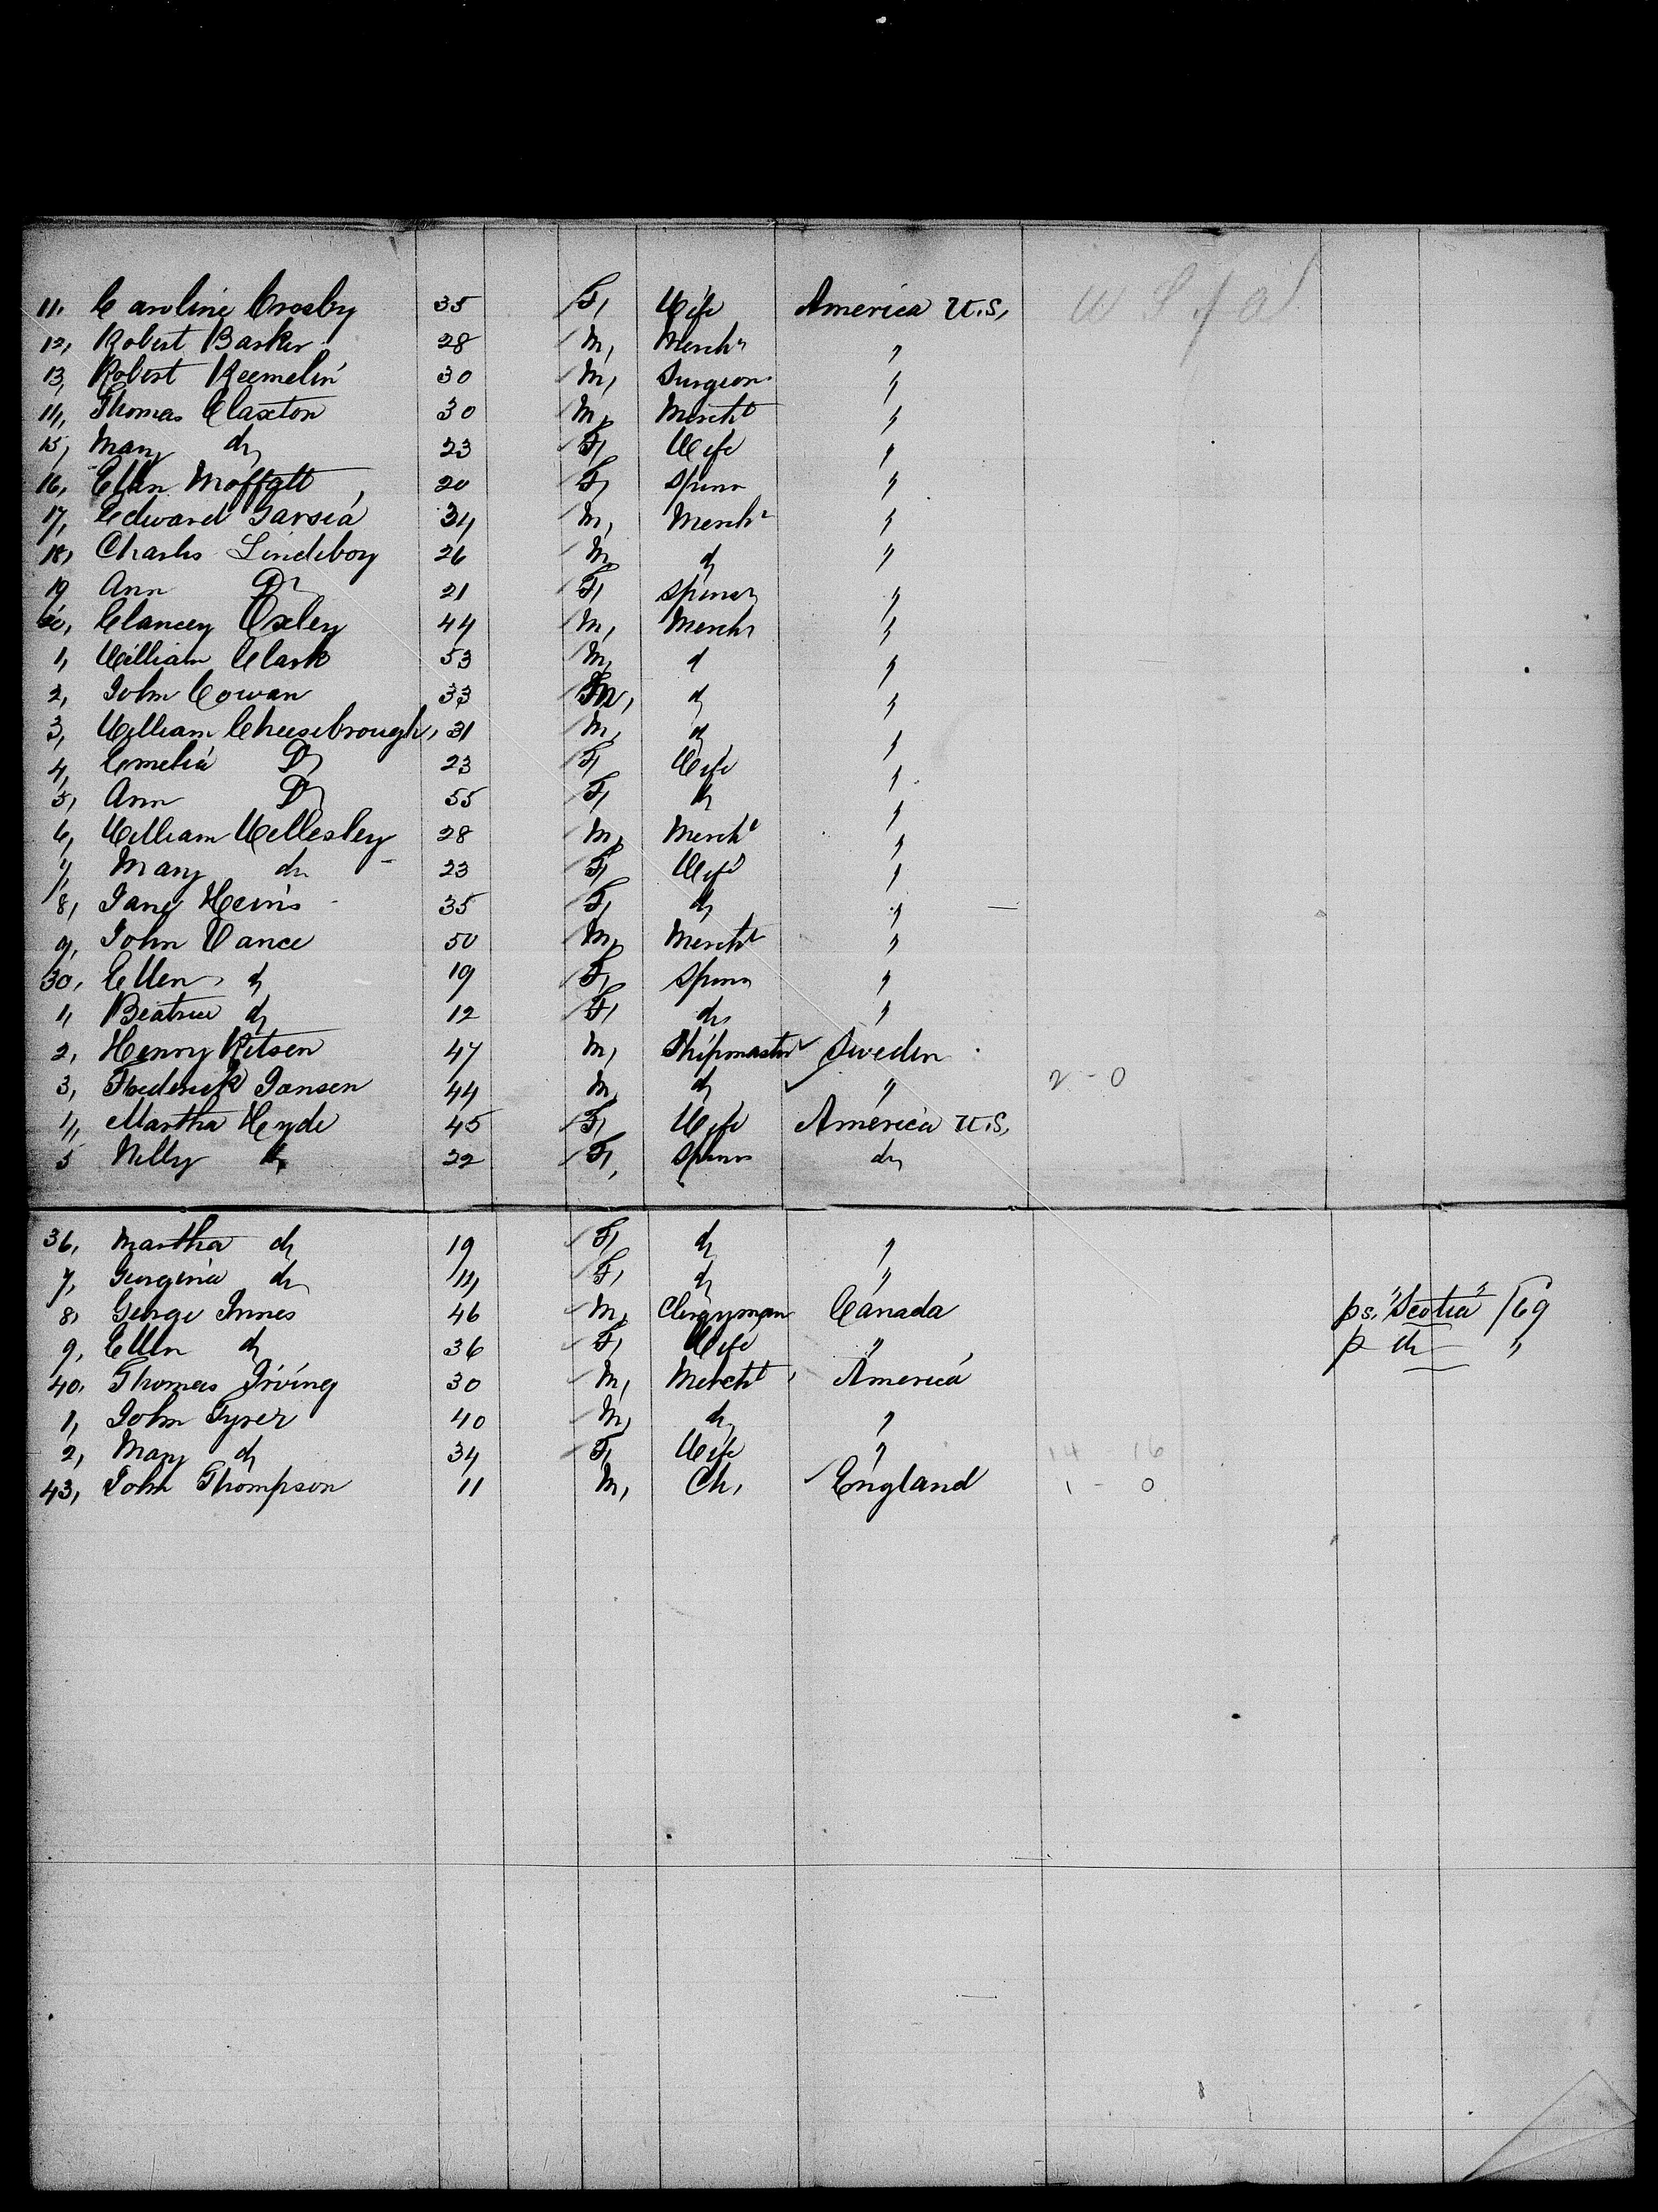 11. Caroline Crosby 35 F, Wife America U.S,
12, Robert Barker 28 M, Mercht "
13, Robert Reemelin 30 M, Surgeon "
14, Thomas Claxton 30 M, Mercht "
15, Mary do 23 F, Wife "
16, Ellen Moffatt 20 F, Spinr "
17, Edward Garsia 34 M, Mercht "
18, Charles Lindeboy 26 M, do "
19 Ann Do 21 F, Spinsr "
20, Clancey Oxley 44 M, Mercht "
1, William Clark 53 M, do "
2, John Cowan 33 M, do "
3, William Cheesebrough, 31 M, do "
4, Emelia Do 23 F, Wife "
5, Ann Do 55 F, do "
6, William Wellesley 28 M, Mercht "
7, Mary do 23 F, Wife "
8, Jane Hevins 35 F, do "
9, John Vance 50 M, Mercht "
30, Ellen do 19 F, Spinr "
1, Beatrice do 12 F, do "
2, Henry Ritsen 47 M, Shipmaster Sweden
3, Frederick Jansen 44 M, do " 2 - 0
4, Martha Hyde 45 F, Wife America U.S,
5 Nelly do 22 F, Spinr do
36, Martha do 19 F, do "
7, Gerginia do 14 F, do "
8, George Innes 46 M, Clergyman Canada ps. "Scotia" /69
9, Ellen do 36 F, Wife " p do "
40, Thomas Irving 30 M, Mercht America
1, John Tyrer 40 M, do "
2, Mary do 34 F, Wife " 14 16
43, John Thompson 11 M, Ch, England 1 - 0